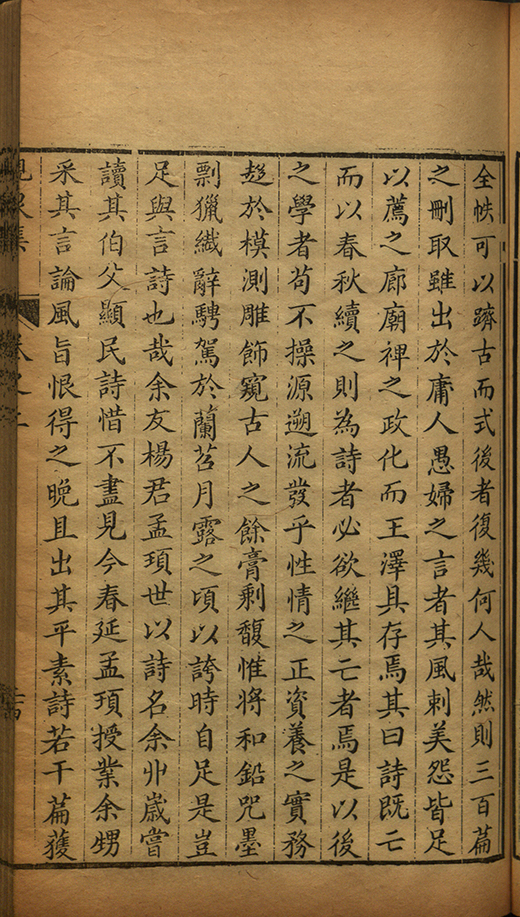 全帙可以躋古而式後者復幾何人哉然則三百篇
之刪取雖出於庸人愚婦之言者其風刺美怨皆足
以薦之廊廟裨之政化而王澤具存焉其曰詩既亡
而以春秋續之則為詩者必欲繼其亡者焉是以後
之學者苟不操源遡流發乎性情之正資養之實務
趍於模測雕飾窺古人之餘膏剩馥惟將和鉛咒墨
剽獵纎辭騁駕於蘭苕月露之頃以誇時自足是豈
足與言詩也哉余友楊君孟頊世以詩名余丱嵗嘗
讀其伯父顯民詩惜不盡見今春延孟頊授業余甥
采其言論風旨恨得之晚且出其平素詩若干篇獲